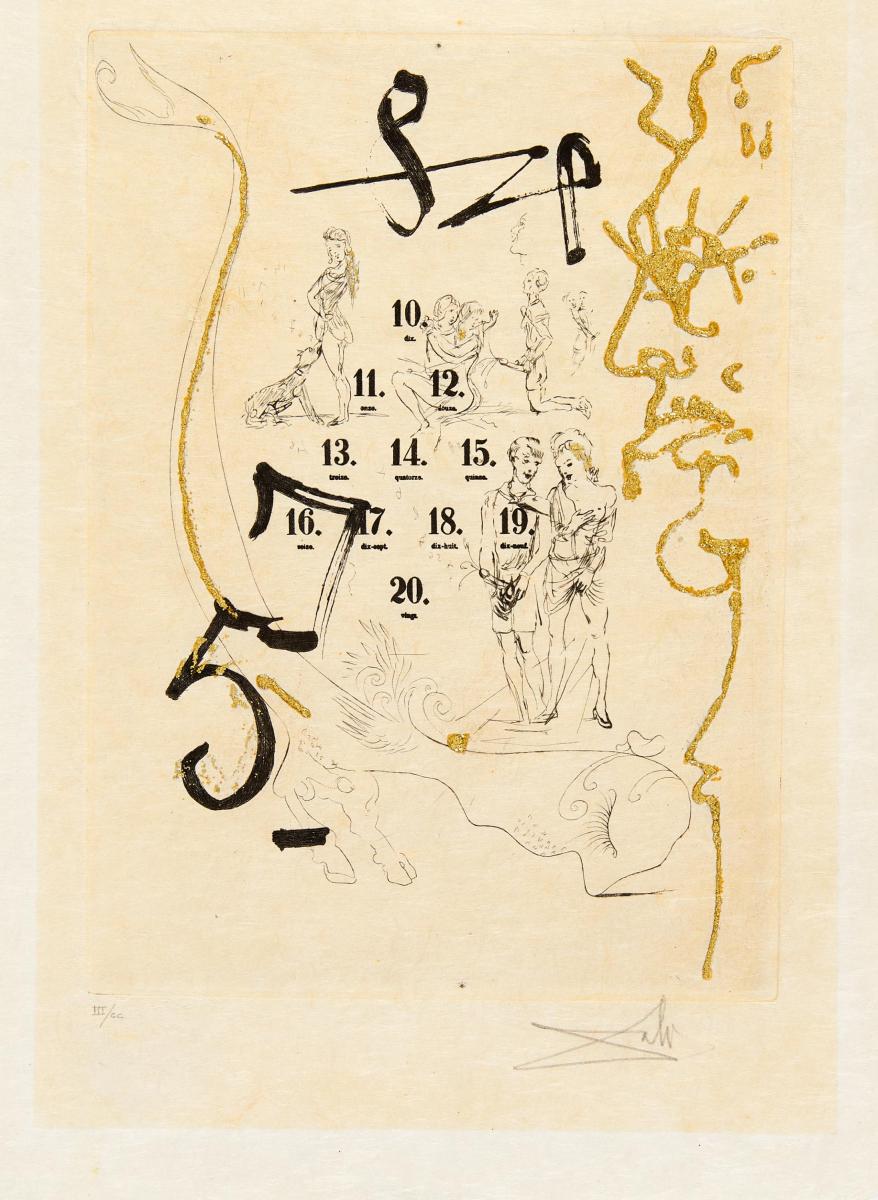 10.
dix.
11. 12.
onze. douze.
13. 14. 15.
treize. quatorze. quinze.
16. 17. 18. 19.
seize. dix-sept. dix-huit. dix-neuf.
20.
vingt.
7
5
III/CC
Dali